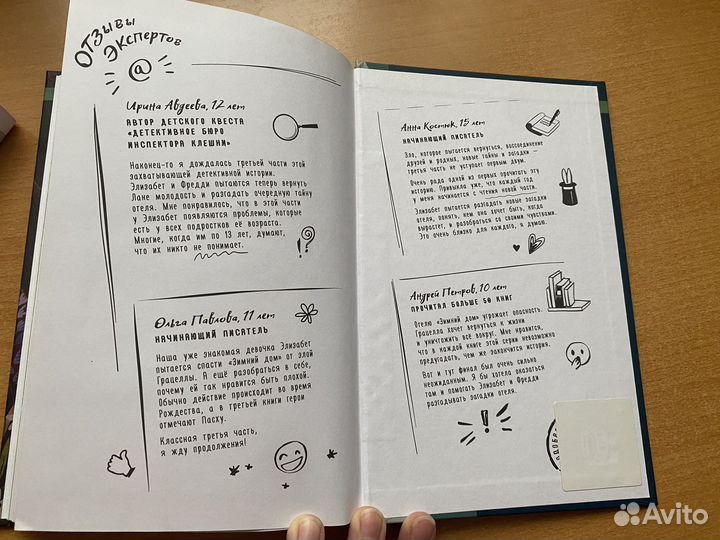 ОТЗЫВЫ
ЭКСПЕРТОВ
@
Ирина Авдеева, 12 лет
АВТОР ДЕТСКОГО КВЕСТА
«ДЕТЕКТИВНОЕ БЮРО
ИНСПЕКТОРА КЛЕШНИ»
Наконец-то я дождалась третьей части этой
захватывающей детективной истории.
Элизабет и Фредди пытаются теперь вернуть
Лане молодость и разгадать очередную тайну
отеля. Мне понравилось, что в этой части
у Элизабет появляются проблемы, которые
есть у всех подростков её возраста.
Многие, когда им по 13 лет, думают,
что их никто не понимает.
Ольга Павлова, 11 лет
НАЧИНАЮЩИЙ ПИСАТЕЛЬ
Наша уже знакомая девочка Элизабет
пытается спасти «Зимний дом» от злой
Грацеллы. А ещё разобраться в себе,
почему ей так нравится быть плохой.
Обычно действие происходит во время
Рождества, а в третьей книге герои
отмечают Пасху.
Классная третья часть,
я жду продолжения!
Анна Костюк, 15 лет
НАЧИНАЮЩИЙ ПИСАТЕЛЬ
Зло, которое пытается вернуться, воссоединение
друзей и родных, новые тайны и загадки –
третья часть не уступает первым двум.
Очень рада одной из первых прочитать эту
историю. Привыкла уже, что каждый год
у меня начинается с чтения новой части.
Элизабет пытается разгадать новые загадки
отеля, понять, кем она хочет быть, когда
вырастет, и разобраться со своими чувствами.
Это очень близко для каждого, я думаю.
Андрей Петров, 10 лет
ПРОЧИТАЛ БОЛЬШЕ 50 КНИГ
Отелю «Зимний дом» угрожает опасность.
Грацелла хочет вернуться к жизни
и уничтожить всё вокруг. Мне нравится,
что в каждой книге этой серии невозможно
предугадать, чем же закончится история.
Вот и тут финал был очень сильно
неожиданным. Я бы хотела оказаться
там и помогать Элизабет и Фредди
разгадывать загадки отеля.
Avito